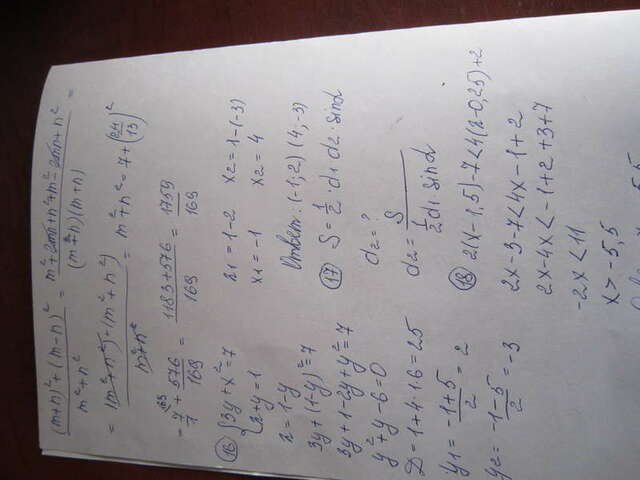 (m+n)²+(m-n)² / m²+n² = m²+2mn+n²+m²-2mn+n² / (m²+n)(m+n) =
= (m²+n²)+(m²+n²) / m²+n² = m²+n² = 7+(24/13)²
= 7/1 + 576/169 = 1183+576 / 169 = 1759 / 169
16 {3y+x²=7
x+y=1
x=1-y
3y+(1-y)²=7
3y+1-2y+y²=7
y²+y-6=0
D=1+4·1·6=25
y1= -1+5 / 2 =2
y2= -1-5 / 2 =-3
x1=1-2 x2=1-(-3)
x1=-1 x2=4
Ответ: (-1,2) (4,-3)
17 S=1/2·d1·d2·sinα
d2=?
d2= S / 1/2 d1·sinα
18 2(x-1,5)-7<4(x-0,25)+2
2x-3-7<4x-1+2
2x-4x<-1+2+3+7
-2x<11
x>-5,5